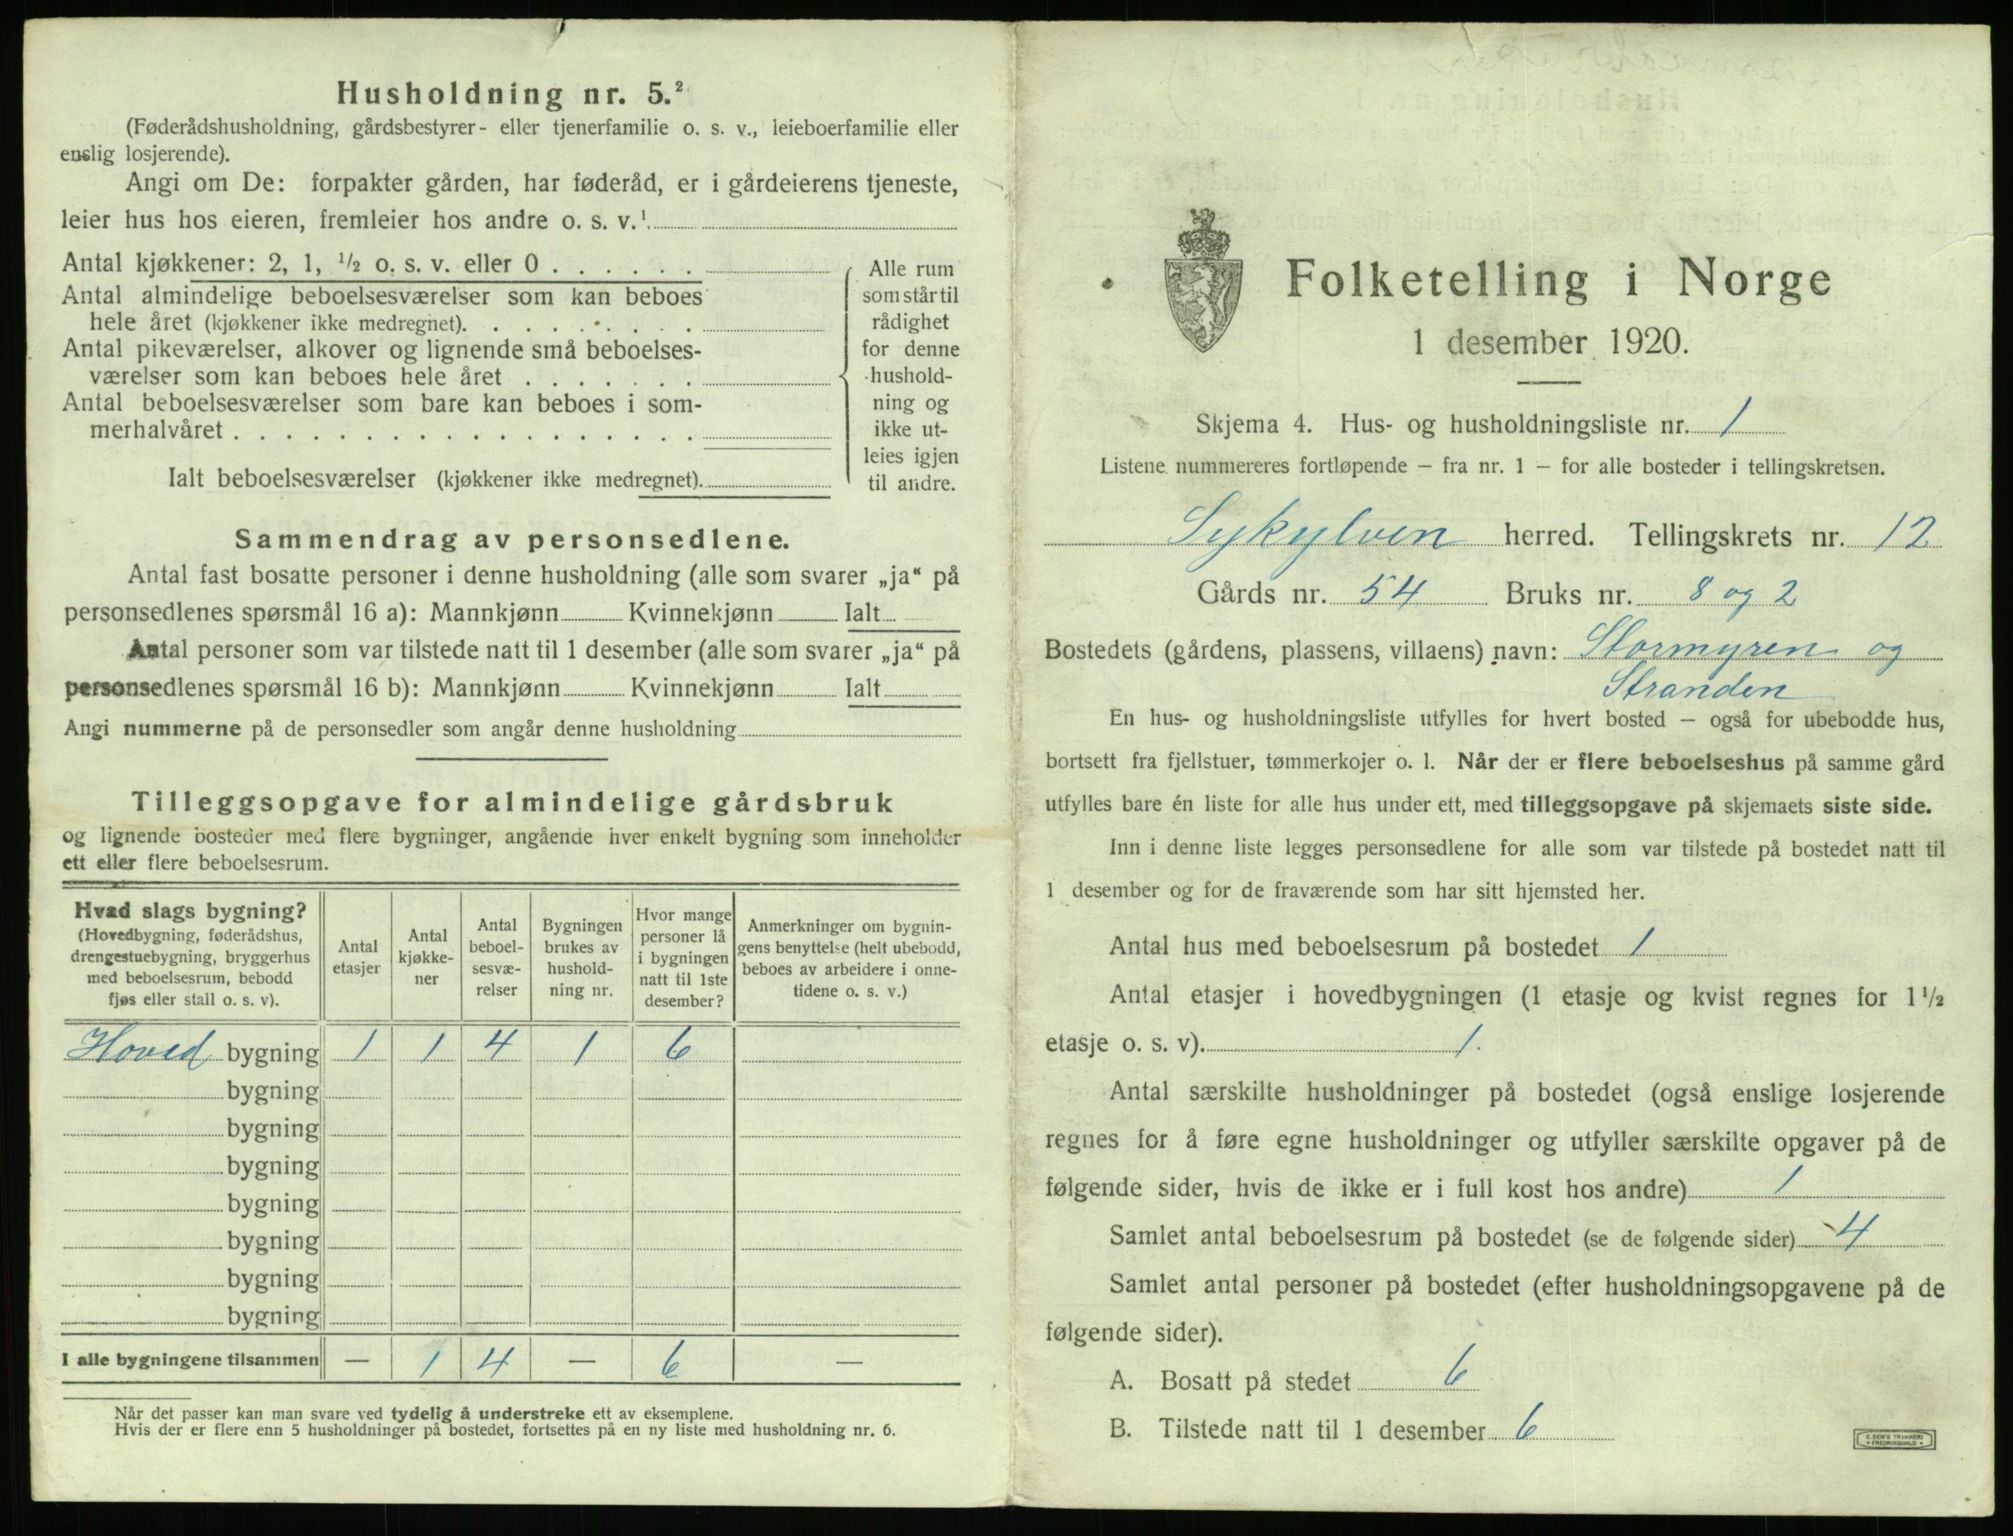 Husholdning nr. 5.²
(Føderådshusholdning, gårdsbestyrer- eller tjenerfamilie o. s. v., leieboerfamilie eller
enslig losjerende).
Angi om De: forpakter gården, har føderåd, er i gårdeierens tjeneste,
leier hus hos eieren, fremleier hos andre o. s. v.¹
Antal kjøkkener: 2, 1, ½ o. s. v. eller 0 . . . . . .
Antal almindelige beboelsesværelser som kan beboes
hele året (kjøkkener ikke medregnet). . . . . . . . .
Antal pikeværelser, alkover og lignende små beboelses-
værelser som kan beboes hele året . . . . . . .
Antal beboelsesværelser som bare kan beboes i som-
merhalvåret . . . . . . . . . . . . . . . . . .
Ialt beboelsesværelser (kjøkkener ikke medregnet).
Alle rum
som står til
rådighet
for denne
hushold-
ning og
ikke ut-
leies igjen
til andre.
Sammendrag av personsedlene.
Antal fast bosatte personer i denne husholdning (alle som svarer „ja“ på
personsedlenes spørsmål 16 a): Mannkjønn Kvinnekjønn Ialt
Antal personer som var tilstede natt til 1 desember (alle som svarer „ja“ på
personsedlenes spørsmål 16 b): Mannkjønn Kvinnekjønn Ialt
Angi nummerne på de personsedler som angår denne husholdning
Tilleggsopgave for almindelige gårdsbruk
og lignende bosteder med flere bygninger, angående hver enkelt bygning som inneholder
ett eller flere beboelsesrum.
Hvad slags bygning?
(Hovedbygning, føderådshus,
drengestuebygning, bryggerhus
med beboelsesrum, bebodd
fjøs eller stall o. s. v).
Antal
etasjer
Antal
kjøkke-
ner
Antal
beboel-
sesvæ-
relser
Bygningen
brukes av
hushold-
ning nr.
Hvor mange
personer lå
i bygningen
natt til 1ste
desember?
Anmerkninger om bygnin-
gens benyttelse (helt ubebodd,
beboes av arbeidere i onne-
tidene o. s. v.)
Hoved bygning 1 1 4 1 6
bygning
bygning
bygning
bygning
bygning
bygning
bygning
I alle bygningene tilsammen — 1 4 — 6 —
Når det passer kan man svare ved tydelig å understreke ett av eksemplene.
Hvis der er flere enn 5 husholdninger på bostedet, fortsettes på en ny liste med husholdning nr. 6.
Folketelling i Norge
1 desember 1920.
Skjema 4. Hus- og husholdningsliste nr. 1
Listene nummereres fortløpende – fra nr. 1 – for alle bosteder i tellingskretsen.
Sykylven herred. Tellingskrets nr. 12
Gårds nr. 54 Bruks nr. 8 og 2
Bostedets (gårdens, plassens, villaens) navn: Stormyren og
Stranden
En hus- og husholdningsliste utfylles for hvert bosted – også for ubebodde hus,
bortsett fra fjellstuer, tømmerkojer o. l. Når der er flere beboelseshus på samme gård
utfylles bare én liste for alle hus under ett, med tilleggsopgave på skjemaets siste side.
Inn i denne liste legges personsedlene for alle som var tilstede på bostedet natt til
1 desember og for de fraværende som har sitt hjemsted her.
Antal hus med beboelsesrum på bostedet 1
Antal etasjer i hovedbygningen (1 etasje og kvist regnes for 1½
etasje o. s. v). 1.
Antal særskilte husholdninger på bostedet (også enslige losjerende
regnes for å føre egne husholdninger og utfyller særskilte opgaver på de
følgende sider, hvis de ikke er i full kost hos andre) 1
Samlet antal beboelsesrum på bostedet (se de følgende sider) 4
Samlet antal personer på bostedet (efter husholdningsopgavene på de
følgende sider).
A. Bosatt på stedet 6
B. Tilstede natt til 1 desember 6